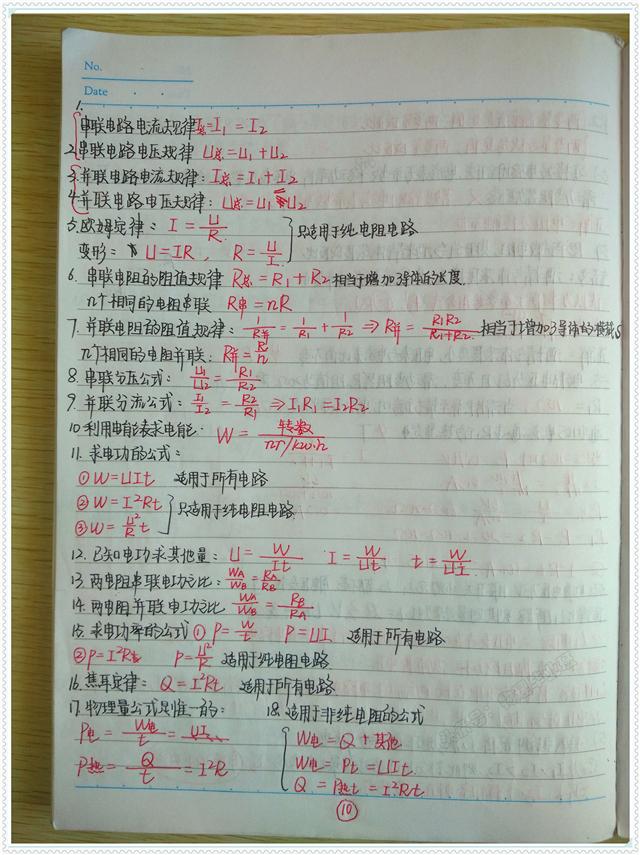 No.
Date
1.
串联电路电流规律 I总=I₁=I₂
2.串联电路电压规律 U总=U₁+U₂
3.并联电路电流规律：I总=I₁+I₂
4.并联电路电压规律：U总=U₁=U₂
5.欧姆定律：I=U/R
只适用于纯电阻电路
变形：U=IR，R=U/I
6.串联电阻的阻值规律 R总=R₁+R₂ 相当于增加了导体的长度.
n个相同的电阻串联 R串=nR
7.并联电阻的阻值规律：1/R并=1/R₁+1/R₂⇒R并=R₁R₂/R₁+R₂ 相当于增加了导体的横截S
n个相同的电阻并联：R并=R/n
8.串联分压公式：U₁/U₂=R₁/R₂
9.并联分流公式：I₁/I₂=R₂/R₁⇒I₁R₁=I₂R₂
10.利用电能表求电能. W=转数/nr/kw·h
11.求电功的公式：
①W=UIt 适用于所有电路
②W=I²Rt
只适用于纯电阻电路
③W=U²/R t
12.已知电功求其他量：U=W/It I=W/Ut t=W/UI
13.两电阻串联电功之比：WA/WB=RA/RB
14.两电阻并联电功之比 WA/WB=RB/RA
15.求电功率的公式①P=W/t P=UI 适用于所有电路
②P=I²R P=U²/R 适用于纯电阻电路
16.焦耳定律：Q=I²Rt 适用于所有电路
17.物理量公式是唯一的： 18.适用于非纯电阻的公式
P电=W电/t=UI
W电=Q+其他
W电=Pt=UIt
P热=Q/t=I²R
Q=P热t=I²Rt
10